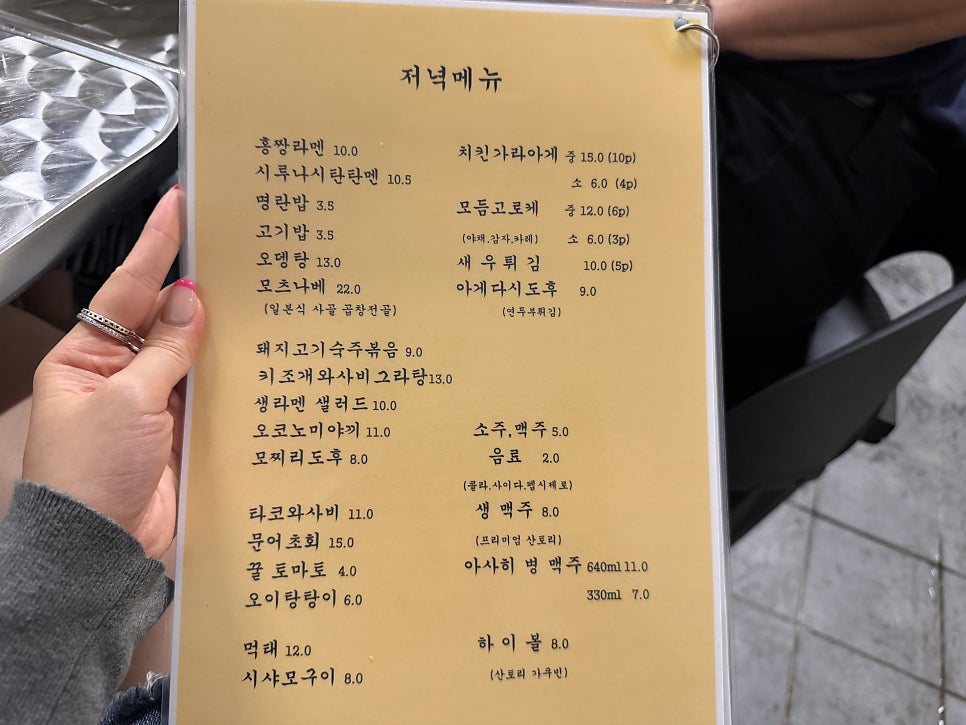 저녁메뉴
홍짱라멘 10.0
시루나시탄탄멘 10.5
명란밥 3.5
고기밥 3.5
오뎅탕 13.0
모츠나베 22.0
(일본식 사골 곱창전골)
돼지고기숙주볶음 9.0
키조개와사비그라탕 13.0
생라멘 샐러드 10.0
오코노미야끼 11.0
모찌리도후 8.0
타코와사비 11.0
문어초회 15.0
꿀토마토 4.0
오이탕탕이 6.0
먹태 12.0
시샤모구이 8.0
치킨가라아게 중 15.0 (10p)
소 6.0 (4p)
모듬고로케 중 12.0 (6p)
(야채.감자.카레) 소 6.0 (3p)
새우튀김 10.0 (5p)
아게다시도후 9.0
(연두부튀김)
소주,맥주 5.0
음료 2.0
(콜라.사이다.펩시제로)
생 맥주 8.0
(프리미엄 산토리)
아사히 병 맥주 640ml 11.0
330ml 7.0
하이볼 8.0
(산토리 가쿠빈)